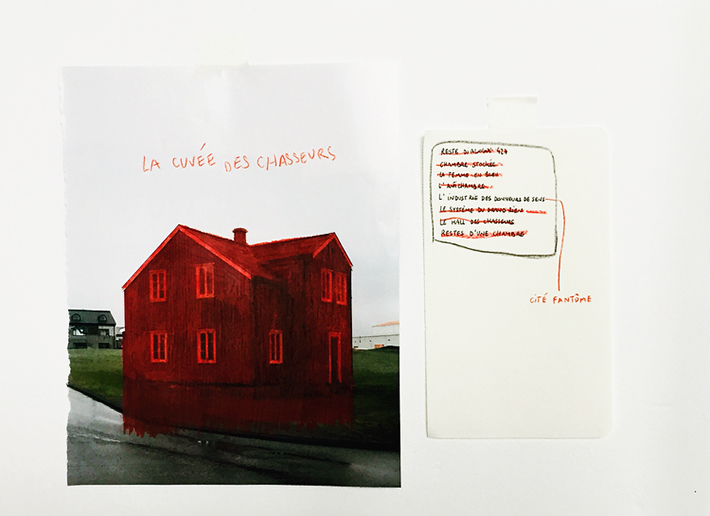 LA CUVÉE DES CHASSEURS
RESTE DIALOGUE 424
CHAMBRE STOCKÉE
LA FEMME EN BLEU
L'ANTICHAMBRE
L'INDUSTRIE DES DONNEURS DE SENS
LE SYSTÈME DU GRAND RIEN
LE HALL DES CHASSEURS
RESTES D'UNE CHAMBRE
CITÉ FANTÔME